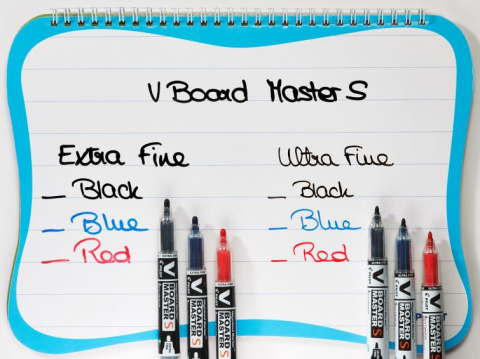 V Board Master S
Extra Fine
Ultra Fine
_ Black
_ Black
_ Blue
_ Blue
_ Red
_ Red
V BOARD MASTER S
V BOARD MASTER S
V BOARD MASTER S
V BOARD MASTER S
V BOARD MASTER S
V BOARD MASTER S